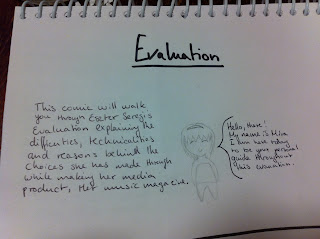 Evaluation
This comic will walk
you through Eseter Seregis
Evaluation explaining the
difficulties, technicalities
and reasons behind the
choices she has made through
while making her media
product, Her music magazine.
Hello, there!
My name is
I am here today
to be your personal
guide throughout
this evaluation.